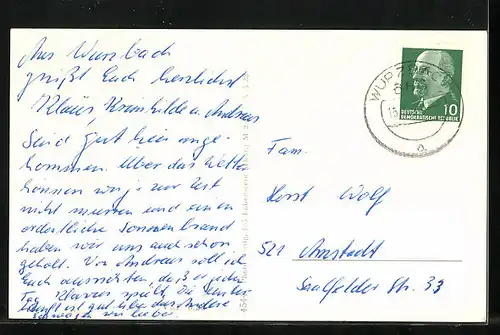 Aus Wurzbach
grüßt Euch herzlichst
Klaus, Kremhilde u. Andreas
Sind gut hier ange-
kommen. Über das Wetter
können wir z. Zt
nicht murren und einen
ordentliche Sonnenbrand
haben wir uns auch schon
geholt. Von Andreas soll ich
Euch ausrichten, daß er jeden
Tag Klavier spielt. Die
ist gut aber das andere
zu lieber.
WURZBACH
DEUTSCHE
DEMOKRATISCHE REPUBLIK
10
a
Fam.
Horst Wolf
521 Arnstadt
Saalfelder Str. 33